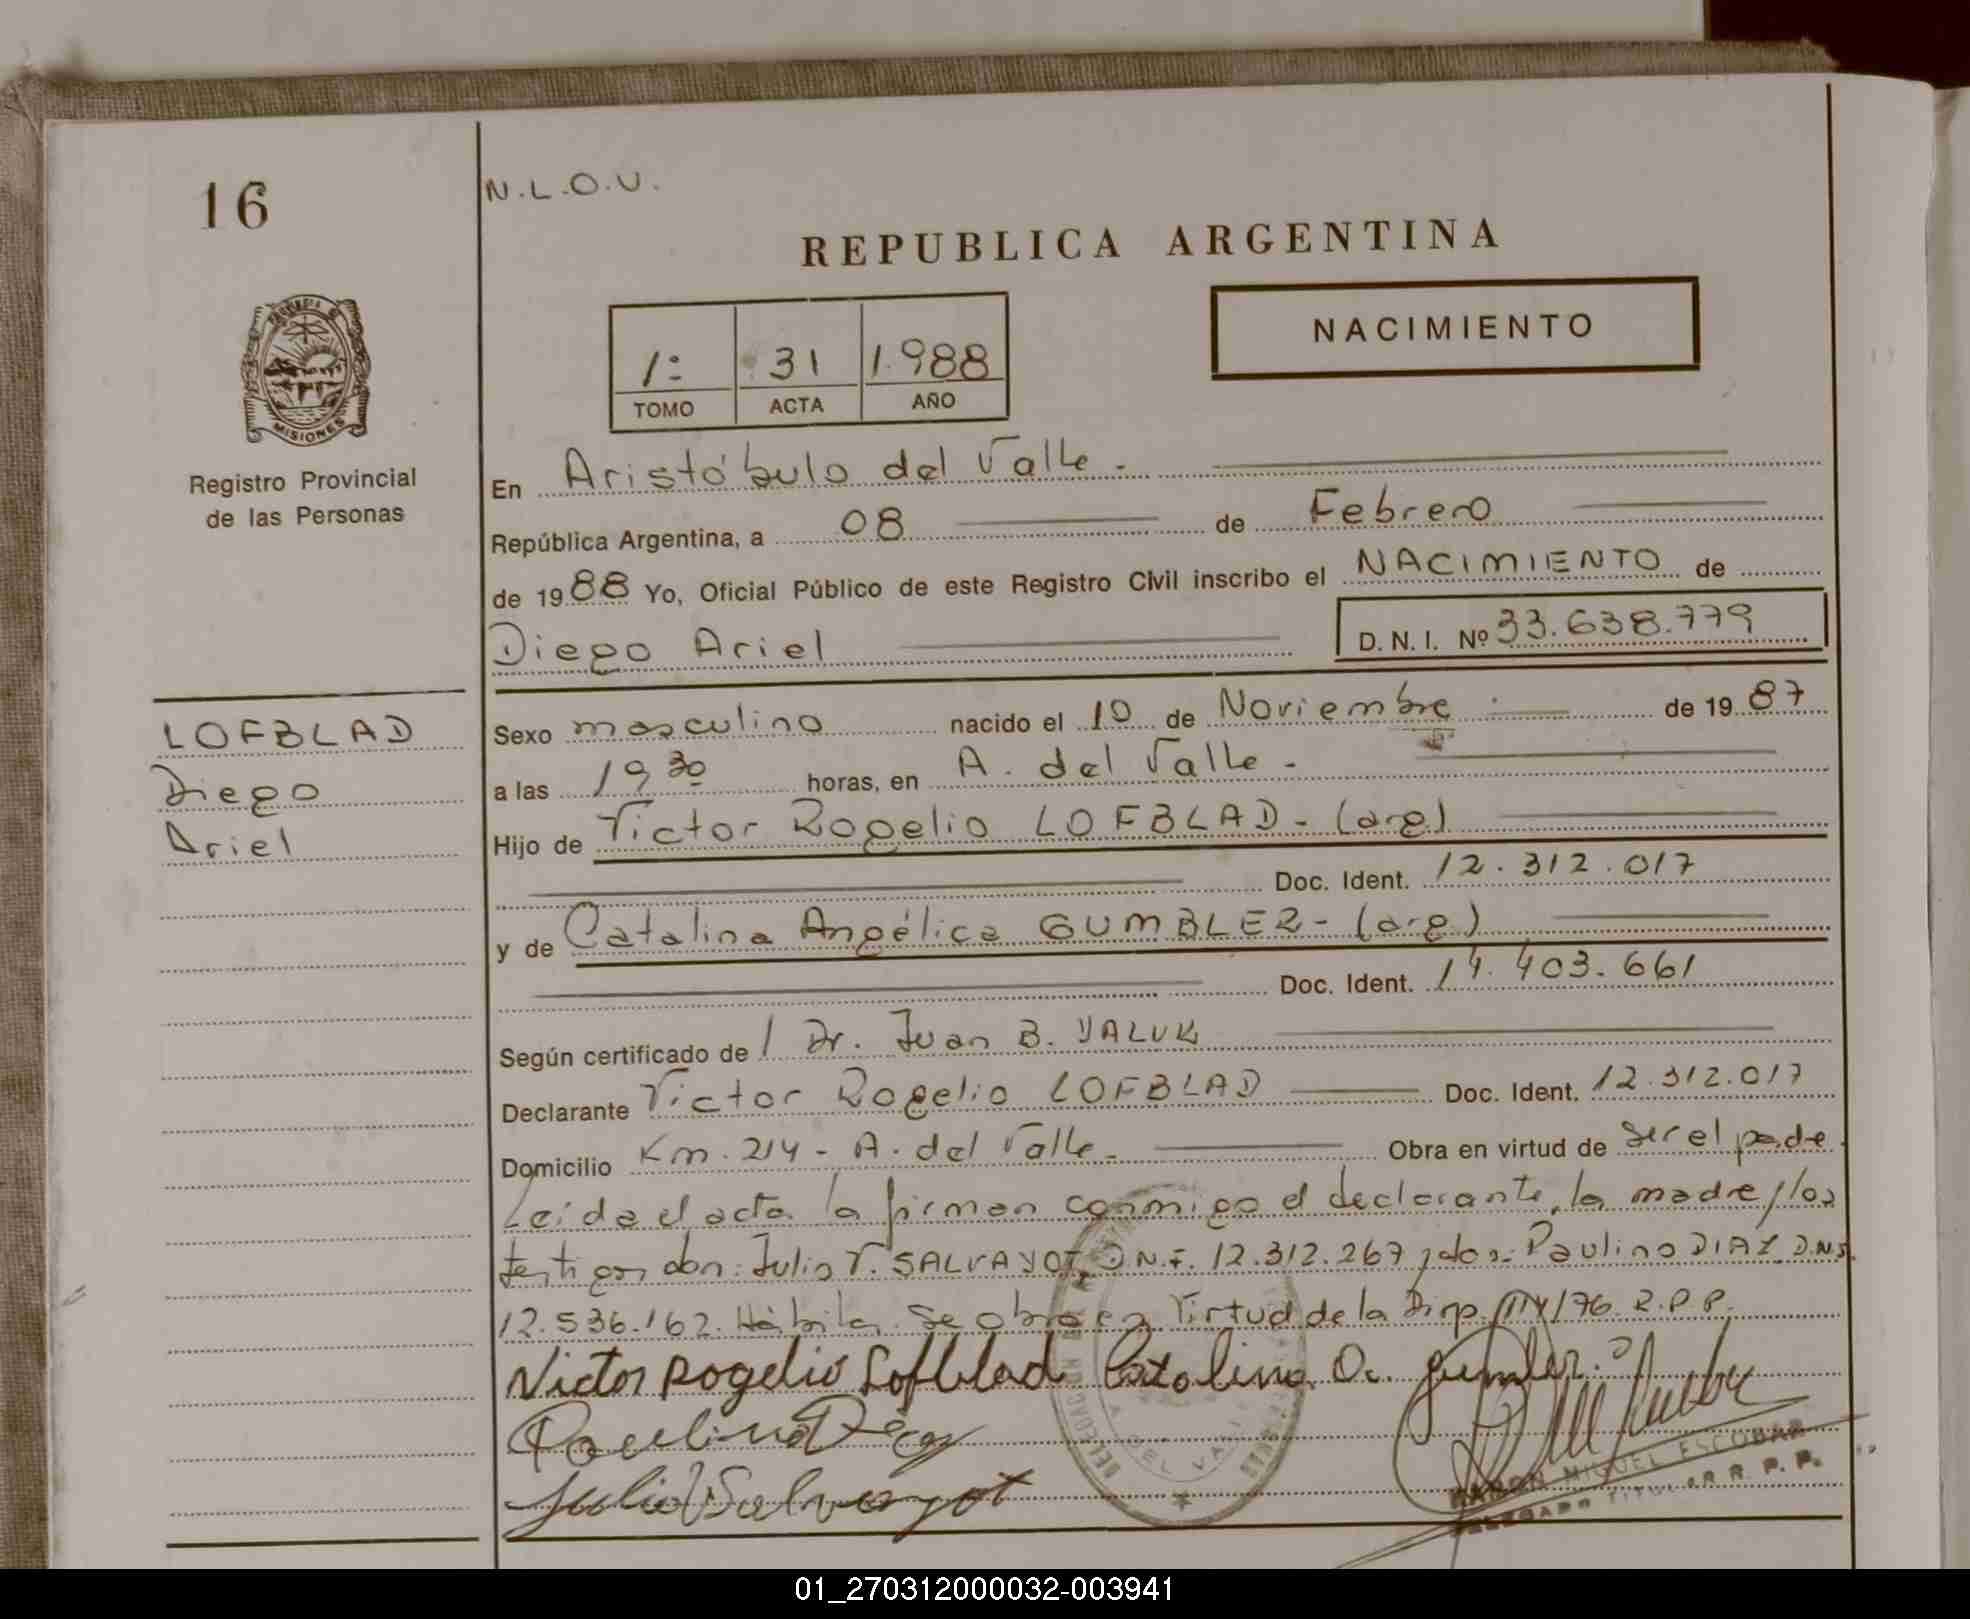 16
N.L.O.U.
REPUBLICA ARGENTINA
1º 31 1.988
TOMO ACTA AÑO
NACIMIENTO
PROVINCIA
MISIONES
Registro Provincial
de las Personas
En Aristóbulo del Valle -
República Argentina, a 08 de Febrero
de 1988 Yo, Oficial Público de este Registro Civil inscribo el NACIMIENTO de
Diego Ariel D. N. I. Nº 33.638.779
LOFBLAD
Diego
Ariel
Sexo masculino nacido el 10 de Noviembre de 1987
a las 19,30 horas, en A. del Valle -
Hijo de Victor Rogelio LOFBLAD - (arg)
Doc. Ident. 12.312.017
y de Catalina Angélica GUMBLER - (arg)
Doc. Ident. 14.403.661
Según certificado de / Dr. Juan B. YALUK
Declarante Victor Rogelio LOFBLAD Doc. Ident. 12.312.017
Domicilio Km. 214 - A. del Valle - Obra en virtud de ser el padre.
Leida el acta la firman conmigo el declarante, la madre y los
testigos don: Julio V. SALVAYOT, D.N.I. 12.312.267 y don: Paulino DIAZ D.N.I.
12.536.162. Hábiles. Se obra en virtud de la Disp. /76. R.P.P.
Victor Rogelio Lofblad Catalina
Paulino Diaz
Julio V Salvayot
RAMON MIGUEL ESCOBAR
DELEGADO TITULAR R. P. P.
01_270312000032-003941